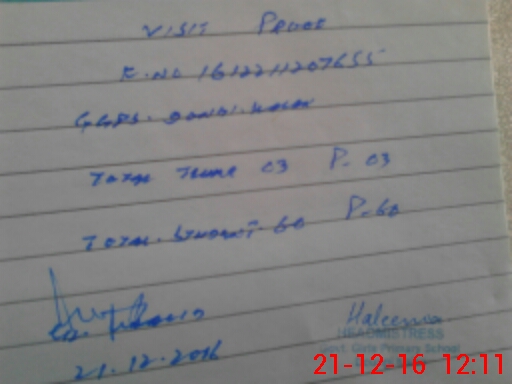 VISIT PROOF
E.NO 1612211207655
GGPS.
Total Teacher 03 P. 03
Total. Student. 60 P. 60
21.12.2016
Haleema
HEADMISTRESS
Govt. Girls Primary School
21-12-16 12:11